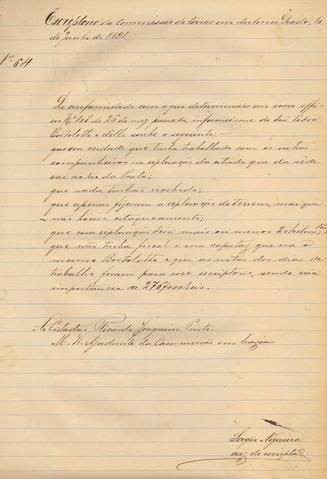 Escriptorio da Commissão de terras em Antonio Prado, 10
de Junho de 1891.
Nº 64
De conformidade com o que determinais em vosso officio
Nº 102 de 26 de mez passado, informei-me de Luiz Pedro
Bortolotti e d'elle soube o seguinte:
que era verdade que tinha trabalhado com os outros
companheiros na exploração da estrada que da séde
vai ao rio da Prata;
que nada tinhão recebido;
que apenas fizeram a exploração do terreno, mas que
não houve estaqueamento;
que essa exploração terá mais ou menos kilom.
que não tinha fiscal e sim capataz, que era o
mesmo Bortolotti e que as notas dos dias de
trabalho foram para esse escriptorio, sendo sua
importancia de 276$000 reis.
Ao Cidadão Ricardo Joaquim
M. D. Ajudante da Commissão em Caxias
Sergio Nogueira
aux. de escripta